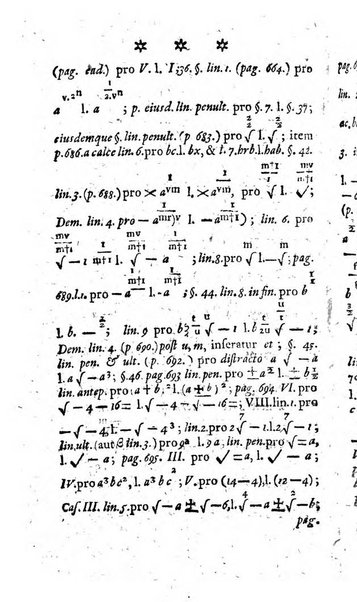 ✡ ✡ ✡
(pag. ead.) pro V. l. I;36. §. lin. 1. (pag. 664.) pro
v.2ⁿ 1/2.vⁿ
a l. a ; p. eiusd. lin. penult. pro §. 7. l. §. 37;
eiusdemque §. lin. penult. (p 683.) pro 2/√ l. 2/2/√ ; item
p.686.a calce lin. 6. pro bc.l. bx, & l. 7.hrb.l.hab. §. 42.
lin.3. (p. 688.) pro × aᵛᵐ l. × aᵛᵐ, pro √ l. √;
Dem. lin. 4. pro — a l. — a ) ; lin. 6. pro
mv m†1 mv m†1
√ — 1 l. √ — a ; lin.8.pro √ l.—√ ; pag.
689.l.1. pro — a l.- a ; §. 44. lin. 8. in fin. pro b
l. b. — ; lin. 9 pro b √ — 1 l. b √ — 1;
Dem. lin. 4. (p 690.) post u, m, inseratur et ; §. 45.
lin. pen. & ult. (p. 692.) pro distracto a √ — a
l. a √ — a³ ; §.46 pag. 693 lin. pen. pro ± a² l. ± b²
lin. antep. pro (a ± b,² l. (a ± b)² ; pag. 694. VI. pro
√ — 4 — 16 l. √ — 4 √ — 16 = ; VIII.lin. 1. pro
— √ — 4 l. √ — 4³ ; lin:2.pro 2 √ — 1 l.2 √ — 1;
lin.ult. (aut 8 lin. 3.) pro 9ª l. 9 a ; lin. pen. pro √ = a,
l. √ — a ; pag. 695. III. pro √ = a, l. √ — a;
IV. pro a³ bc², l. a³ b c² ; V. pro (14—4), l. (12—4);
Cas. III. lin. 5. pro √ — a ± √ — 6, l. √ — a ± √ — b;
pag.